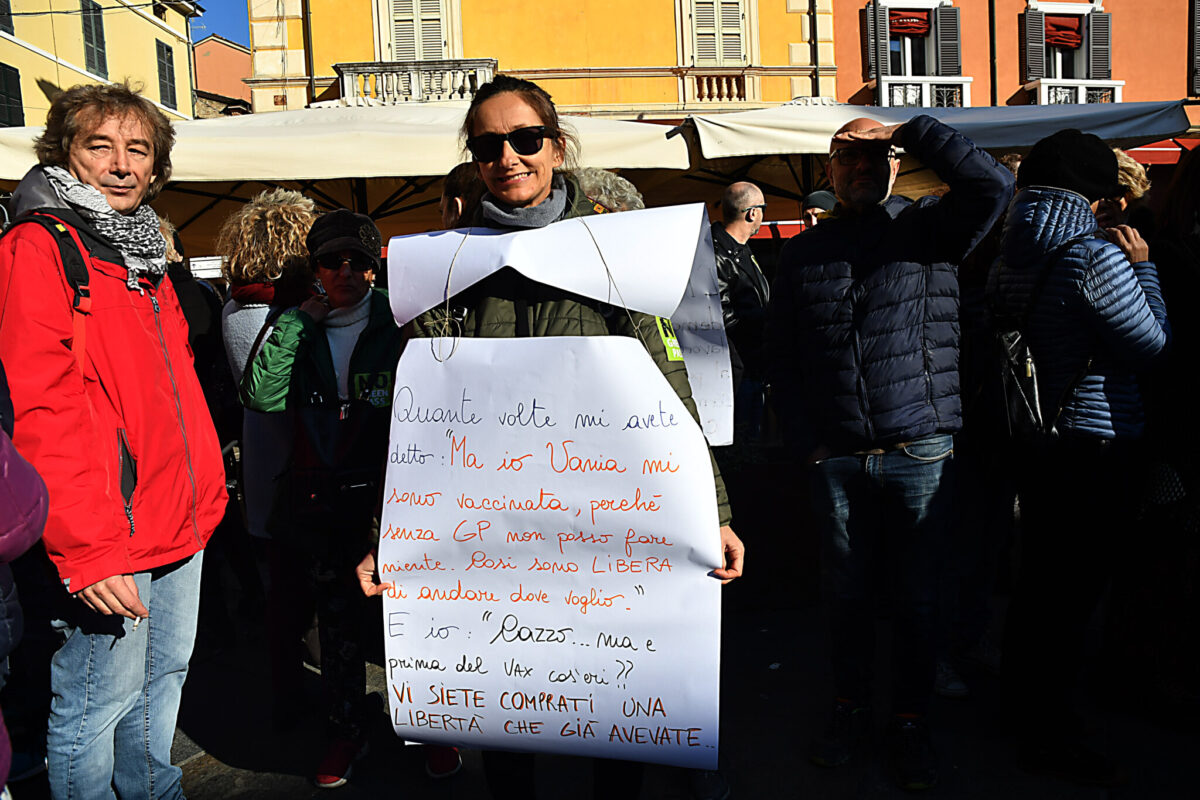 Quante volte mi avete
detto: "Ma io Vania mi
sono vaccinata, perché
senza GP non posso fare
niente. Così sono LIBERA
di andare dove voglio."
E io: "Cazzo... ma e
prima del VAX cos'eri??
VI SIETE COMPRATI UNA
LIBERTÀ CHE GIÀ AVEVATE..
NO
GREEN
PASS